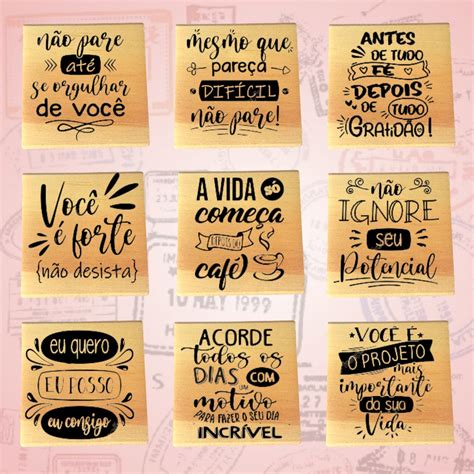 não pare
até
se orgulhar
de você
mesmo que
pareça
DIFÍCIL
não pare!
ANTES
DE TUDO
FÉ
DEPOIS
DE TUDO
GRATIDÃO!
Você
é forte
{não desista}
A VIDA SÓ
começa
DEPOIS DO
café
não
IGNORE
seu
Potencial
eu quero
EU POSSO
eu consigo
ACORDE
todos os
DIAS COM
motivo
PARA FAZER O SEU DIA
INCRÍVEL
VOCÊ É
O PROJETO
mais
importante
da sua
Vida
10 MAY 1999